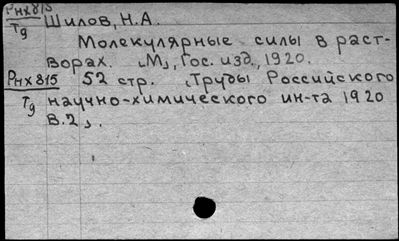 РНХ815
Тд Шилов, Н.А.
Молекулярные силы в раст-
ворах. „М„, Гос. изд., 1920.
РНХ815 52 стр. „Труды Российского
Тд научно-химического ин-та 1920
В.2„.